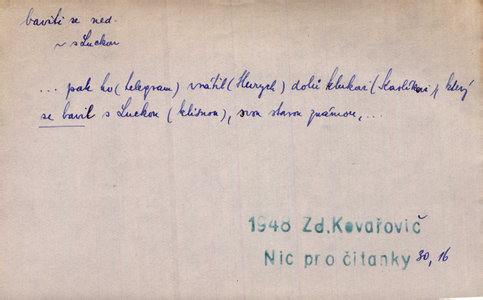 baviti se ned.
~ s Luckou
... pak ho (telegram) vrátil (Hurych) dolů klukovi (Karlíkovi), který
se bavil s Luckou (klisnou), svou starou známou, ...
1948 Zd. Kovařovič
Nic pro čítanky 30, 16